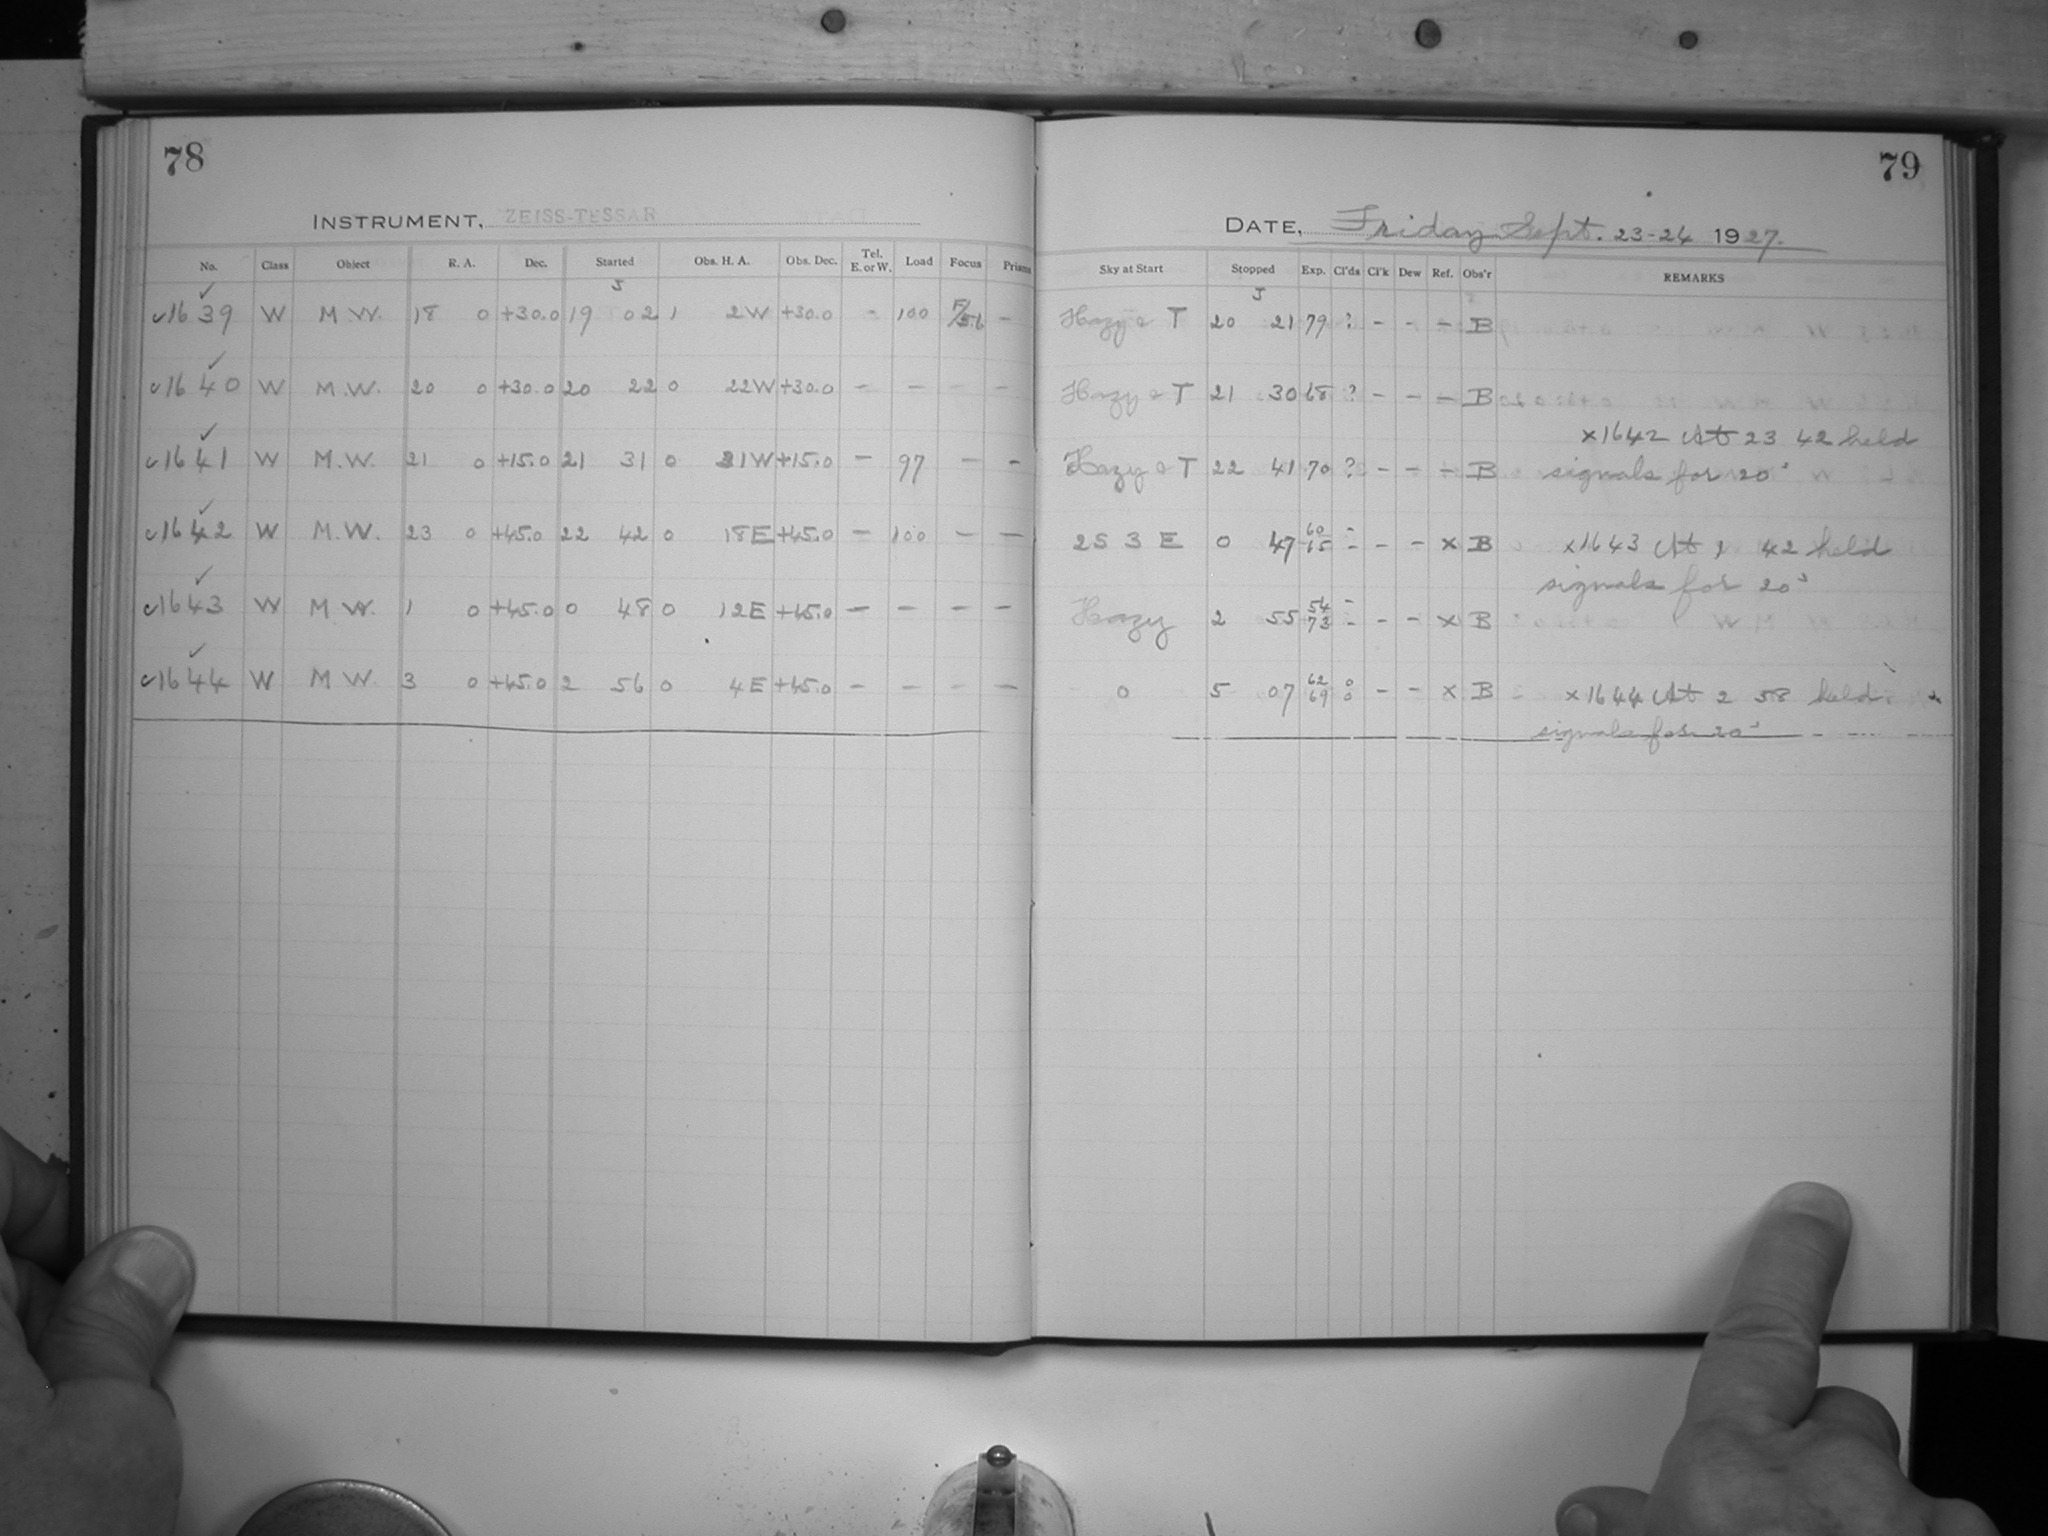 78
INSTRUMENT, ZEISS-TESSAR
No. Class Object R. A. Dec. Started Obs. H. A. Obs. Dec. Tel. E. or W. Load Focus Prisms
J
✓1639 W M.W. 18 0 +30.0 19 02 1 2W +30.0 - 100 F/5.6 -
✓1640 W M.W. 20 0 +30.0 20 22 0 22W +30.0 - - - -
✓1641 W M.W. 21 0 +15.0 21 31 0 31W +15.0 - 97 - -
✓1642 W M.W. 23 0 +45.0 22 42 0 18E +45.0 - 100 - -
✓1643 W M.W. 1 0 +45.0 0 48 0 12E +45.0 - - - -
✓1644 W M.W. 3 0 +45.0 2 56 0 4E +45.0 - - - -
79
DATE, Friday Sept. 23-24 1927.
Sky at Start Stopped Exp. Cl'ds Cl'k Dew Ref. Obs'r REMARKS
J
Hazy T 20 21 79 ? - - - B
Hazy T 21 30 68 ? - - - B
x1642 At 23 42 held
Hazy T 22 41 70 ? - - - B signals for 20s
2S 3 E 0 47 60 65 - - - - x B x1643 At 1 42 held
signals for 20s
Hazy 2 55 54 73 - - - - x B
0 5 07 62 69 0 0 - - x B x1644 At 2 58 held
signals for 20s